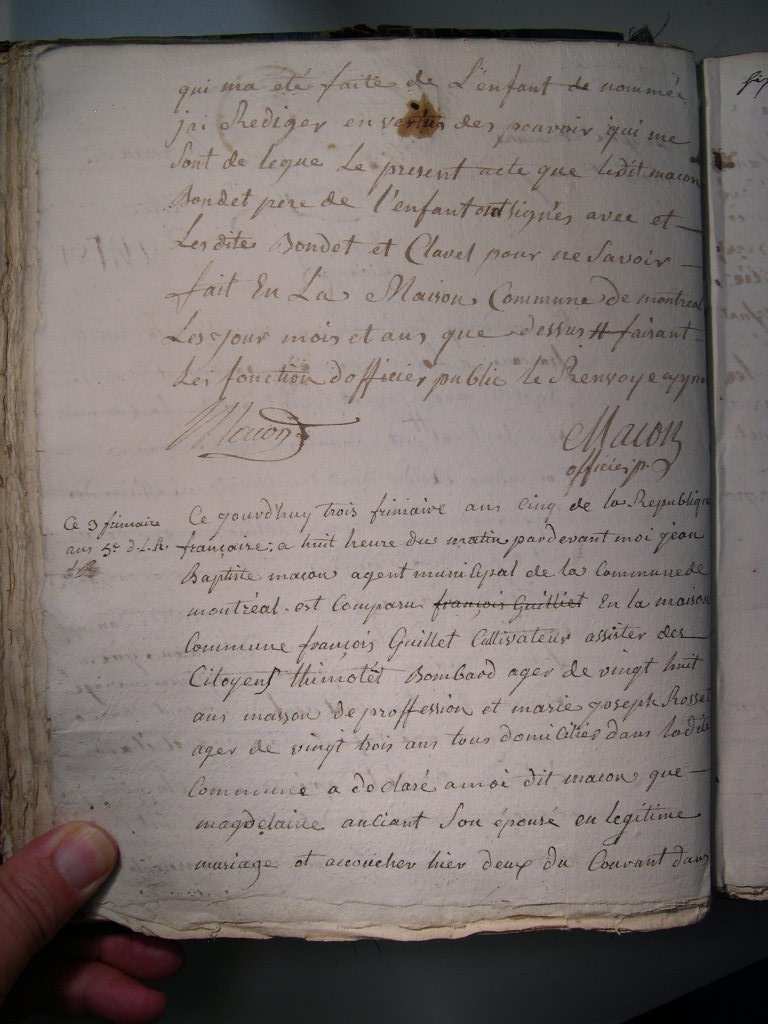 qui ma eté faite de L'enfant de nommée
jai Rediger en vertus des pouvoir qui me
Sont de legue Le present acte que ledit macon
Bondet pere de l'enfant ont signés avec et
Les dite Bondet et Clavel pour ne Savoir
fait En La Maison Commune de montreal
Les jour mois et ans que dessus # faisant
Les fonction dofficier public le Renvoye
Macon
Macon
officier p
Ce 3 frimaire
ans 5e d. L. R.
Ce jourdhuy trois frimaire ans Cinq de la Republique
françaire; a huit heure du matin pardevant moi jean
Baptiste macon agent municipal de la Commune de
montréal est Comparu françois Guilliet En la maison
Commune françois Guillet Cultivateur assister des
Citoyens thimotés Bombard ager de vingt huit
ans masson de proffession et marie joseph Rosset
ager de vingt trois ans tous domiciliés dans ladite
Commune a declaré a moi dit macon que
magdelaine anciant Son épousé en legitime
mariage et accoucher hier deux du Courant dans